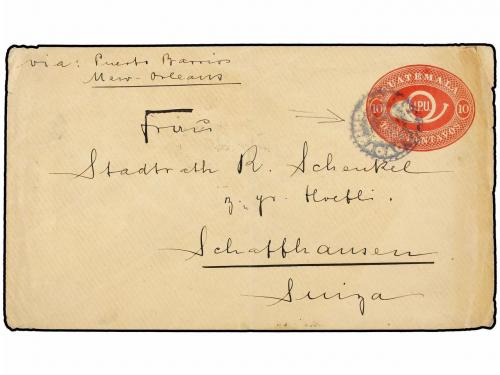 via: Puerto Barrios
New-Orleans
GUATEMALA
10 UPU 10
CENTAVOS
Frau
Stadtrath R. Schenkel
z. gr.
Schaffhausen
Suiza